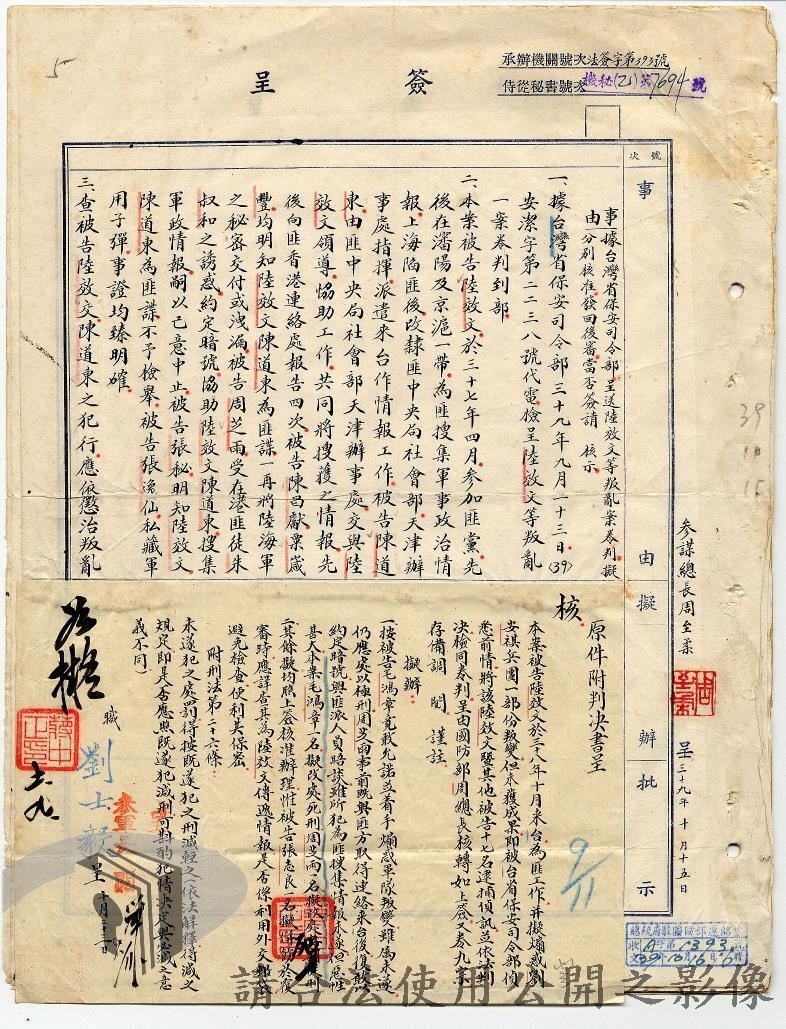 承辦機關號次法簽字第393號
侍從秘書號次機秘(乙)第7694號
簽呈
號次
事由擬辦批示
事由據台灣省保安司令部呈送陸效文等叛亂案卷判擬
分別核准發回復審當否簽請 核示
一、據台灣省保安司令部三十九年九月二十三日(39)
安潔字第二二三八號代電檢呈陸效文等叛亂
一案卷判到部
二、本案被告陸效文於三十七年四月參加匪黨先
後在瀋陽及京滬一帶為匪搜集軍事政治情
報上海陷匪後改隸匪中央局社會部天津辦
事處指揮派遣來台作情報工作被告陳道
東由匪中央局社會部天津辦事處交與陸
效文領導協助工作共同將搜獲之情報先
後向匪香港連絡處報告四次被告陳西獻粟歲
豐均明知陸效文陳道東為匪諜一再將陸海軍
之秘密交付或洩漏被告周芝雨受在港匪徒朱
叔和之誘惑約定暗號協助陸效文陳道東搜集
軍政情報嗣以己意中止被告張秘明知陸效文
陳道東為匪諜不予檢舉被告張逸仙私藏軍
用子彈事證均臻明確
三、查被告陸效文陳道東之犯行應依懲治叛亂
參謀總長周至柔
呈 三十九年十月十五日
39 10 15
原件附判決書呈
核
本案被告陸效文於三八年十月來台為匪工作并擬煽惑劉
安祺兵團一部份叛變但未獲成果即被台省保安司令部偵
悉前情將該陸效文暨其他被告十七名逮捕偵訊並依法判
決檢同卷判呈由國防部周總長核轉如上簽又卷九宗
存備調閱 謹註
擬辦
一按被告毛鴻章竟敢允諾並着手煽惑軍隊叛變雖屬未遂
仍應處以極刑周芝雨事前既與匪方取得連絡來台後復敢以
約定暗號與匪派人員晤談雖所犯為匪搜集情報未遂但惡性
甚大本案毛鴻章一名擬改處死刑周芝雨一名擬改處 刑
二其餘擬均照上簽核准辦理惟被告張志良一名擬併飭於復
審時應詳查其為陸效文傳遞情報是否係利用外交郵袋
避免檢查便利夫保密
附刑法第二十六條
未遂犯之處罰得按既遂犯之刑減輕之(依法解釋得減之
規定即是否應照既遂犯減刑可斟酌犯情決定與必減之意
義不同)
職 劉士毅 呈 十月二十一
如擬
蔣中正印
十一 九
9/11
總統府駐國防部連絡室
收文 字第1393號
39年10月16日
請合法使用公開之影像